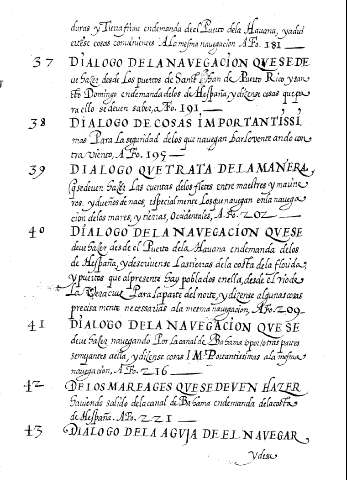 duras y Tierra firme en demanda de el Puerto de la Havana, y advi
ertense cosas convenientes A la mesma navegacion A Fo. 181
37 DIALOGO DE LA NAVEGACION QVE SE DE
ve hazer desde los puertos de Sant Juan de Puerto Rico y san
cto Domingo en demanda de los de Hespaña, y dizense cosas que pa
ra ello se deven saber, a Fo. 191
38 DIALOGO DE COSAS IMPORTANTISSI
mas Para la seguridad de los que navegan barloventeando con
tra viento, A Fo. 195
39 DIALOGO QVE TRATA DE LA MANERA,
q se deven hazer Las cuentas de los fletes entre maestres y marine
ros, y dueños de naos, especialmente Los que navegan en la navega
cion de los mares, y tierras, Occidentales, A Fo. 202
40 DIALOGO DE LA NAVEGACION QVE SE
deve hazer desde el Puerto de la Havana en demanda de los
de Hespaña, y descrivense Las tierras de la costa de la florida,
y puertos que al presente hay poblados en ella, desde el Rio de
La Para la parte del norte, y dizense algunas cosas
precisamente necessarias a la mesma navegacion, A Fo. 209
41 DIALOGO DE LA NAVEGACION QVE SE
deve hazer navegando Por la canal de Bahama o por otras partes
semejantes a ella, y dizense cosas IMPortantissimas a la mesma
navegacion, A Fo. 216
42 DE LOS MAREAGES QVE SE DEVEN HAZER
haviendo salido de la canal de Bahama en demanda de la costa
de Hespaña. A Fo. 221
43 DIALOGO DE LA AGVJA DE EL NAVEGAR,